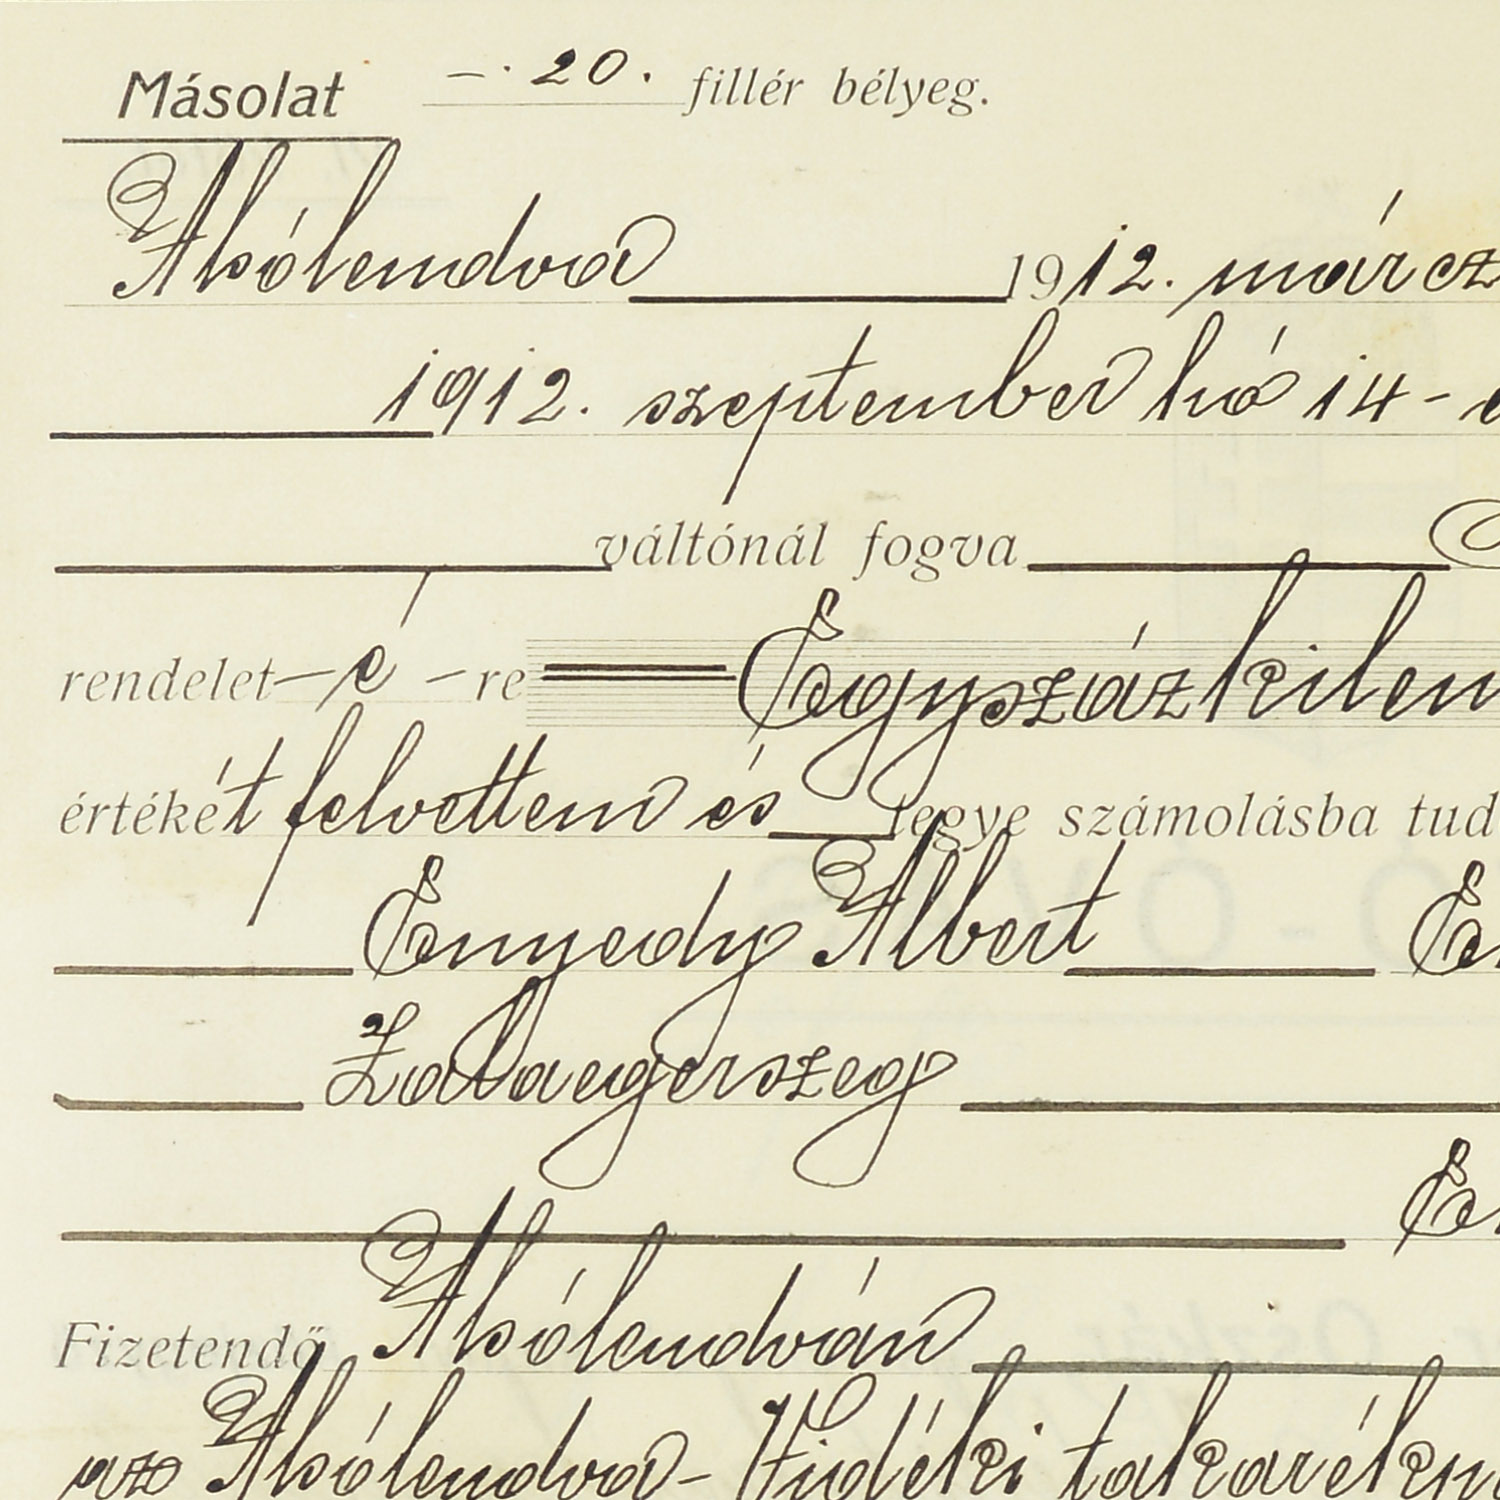 Másolat —. 20. fillér bélyeg.
Alsólendva 1912. márcz
1912. szeptember hó 14-
váltónál fogva
rendelet—é—re Egyszázkilen
értékét felvettem és tegye számolásba tud
Enyedy Albert En
Zalaegerszeg
En
Fizetendő Alsólendván
az Alsólendva-Vidéki takarékp